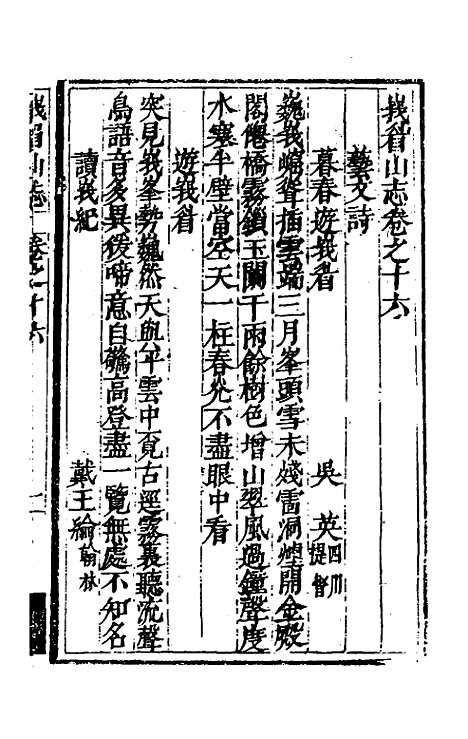 峩眉山志卷之十六
藝文詩
暮春遊峩眉
吳英四川提督
巍峩崷聳揷雲端三月峯頭雪未殘雷洞煙開金殿
閣僊橋霧鎖玉闌干雨餘樹色增山翠風過鐘聲度
水寒半壁當空天一柱春光不盡眼中看
遊峩眉
突見峩峯勢巍然天與平雲中覓古逕霧裏聽流聲
鳥語音多異猿啼意自驚高登盡一覽無處不知名
讀峩紀
戴王綸翰林
峩眉山志
卷之十六
一